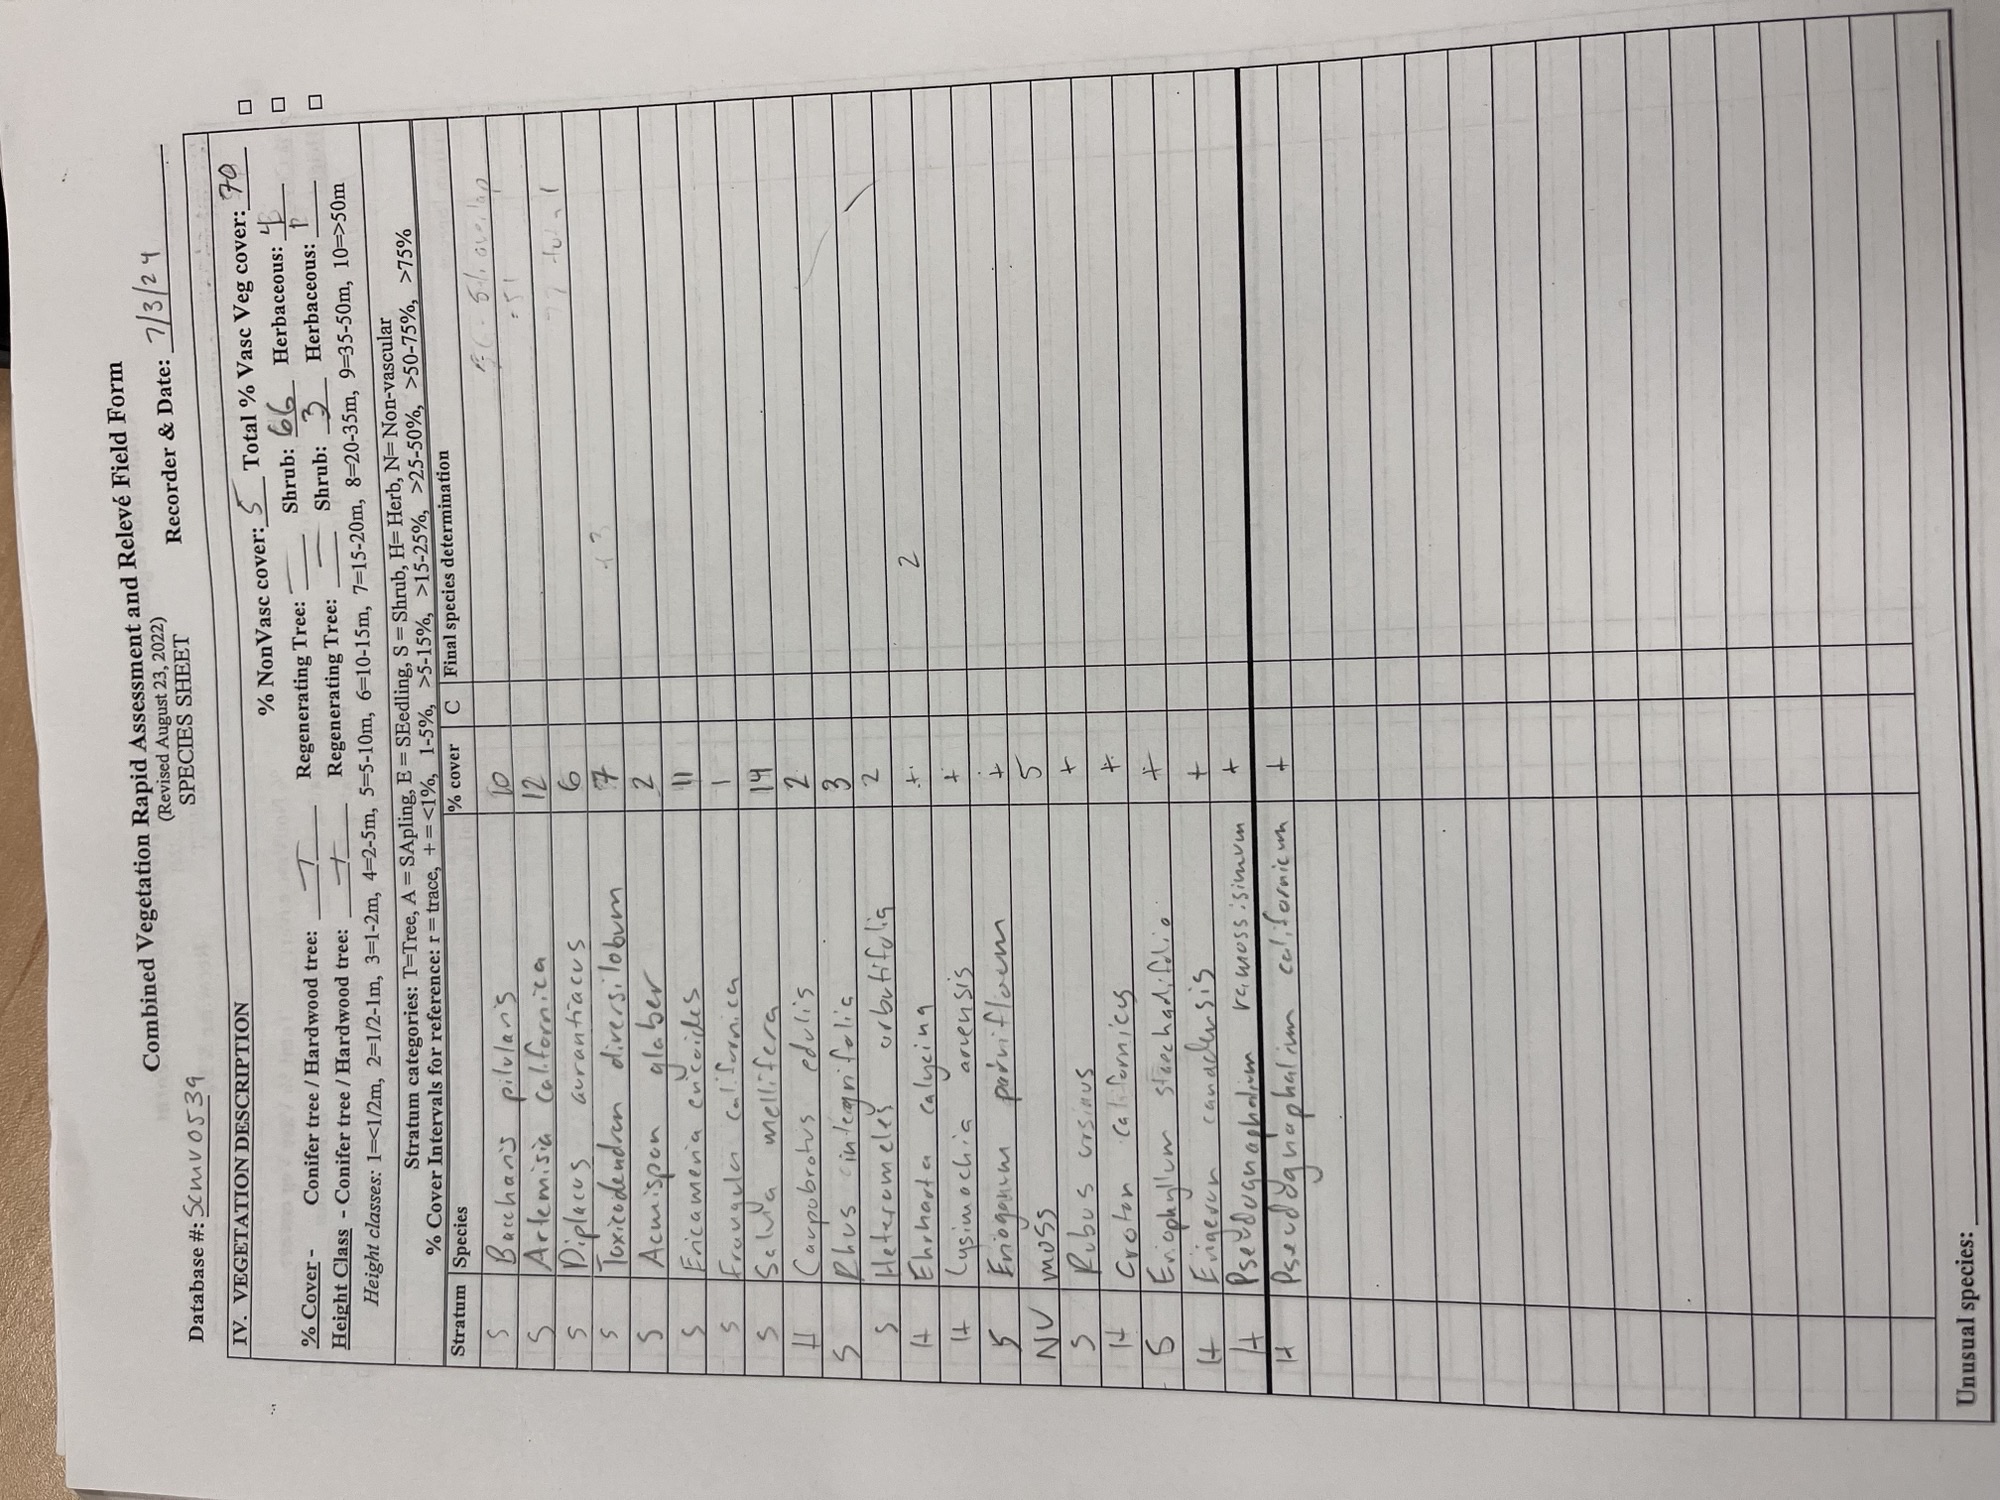 Combined Vegetation Rapid Assessment and Relevé Field Form
(Revised August 23, 2022)
SPECIES SHEET
Database #: SCMV0539 Recorder & Date: 7/3/24
IV. VEGETATION DESCRIPTION
% NonVasc cover: 5 Total % Vasc Veg cover: 70
% Cover - Conifer tree / Hardwood tree: / Regenerating Tree: Shrub: 66 Herbaceous: 4
Height Class - Conifer tree / Hardwood tree: / Regenerating Tree: Shrub: 3 Herbaceous: 1
Height classes: 1=<1/2m, 2=1/2-1m, 3=1-2m, 4=2-5m, 5=5-10m, 6=10-15m, 7=15-20m, 8=20-35m, 9=35-50m, 10=>50m
Stratum categories: T=Tree, A = SApling, E = SEedling, S = Shrub, H= Herb, N= Non-vascular
% Cover Intervals for reference: r = trace, + = <1%, 1-5%, >5-15%, >15-25%, >25-50%, >50-75%, >75%
Stratum Species % cover C Final species determination
S Baccharis pilularis 10 5% overlap
S Artemisia californica 12 total
S Diplacus aurantiacus 6
S Toxicodendron diversilobum 7
S Acmispon glaber 2
S Ericameria ericoides 11
S Frangula californica 1
S Salvia mellifera 14
H Carpobrotus edulis 2
S Rhus integrifolia 3
S Heteromeles arbutifolia 2
H Ehrharta calycina + 2
H Lysimachia arvensis +
S Eriogonum parvifloum +
NV moss 5
S Rubus ursinus +
H Croton californicus +
S Eriophyllum staechadifolia +
H Erigeron canadensis +
H Pseudognaphalium ramossisimum +
H Pseudognaphalium californicum +
Unusual species: